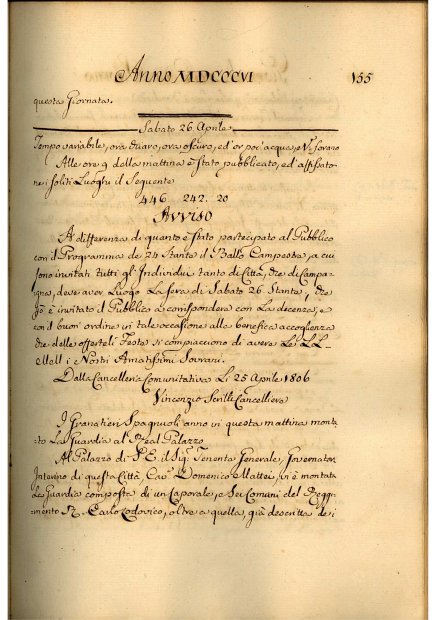 Anno MDCCCVI 155
questa Giornata.
Sabato 26. Aprile
Tempo variabile, ora chiaro, ora oscuro, ed or poc'acqua, e
Alle ore 9 della mattina è stato pubblicato, ed affissato
nei soliti Luoghi il Seguente
446 242. 20
Avviso
A differenza di quanto è stato partecipato al Pubblico
con il Programma de 24 Stante il Ballo Campestre, a cui
sono invitati tutti gl'Individui tanto di Città, che di Campa-
gna, deve aver Luogo La sera di Sabato 26 Stante, che
però è invitato il Pubblico a corrispondere con La decenza, e
con il buon'ordine in tale occasione alla benefica accoglienza
che delle offerteli Feste si compiacciono di avere Le LL.
MM. i Nostri Amatissimi Sovrani.
Dalla Cancelleria Comunitativa Li 25 Aprile 1806
Vincenzio Scrilli Cancelliere
I Granatieri Spagnuoli anno in questa mattina monta-
to La Guardia al Real Palazzo.
Al Palazzo di S. E. il Sig. Tenente Generale, Governatore
Interino di questa Città Cav. Domenico Mattei, vi è montata
La Guardia composta di un Caporale, e Sei Comuni del Reggi-
mento R. Carlo Lodovico, oltre a quella, già descritta dei